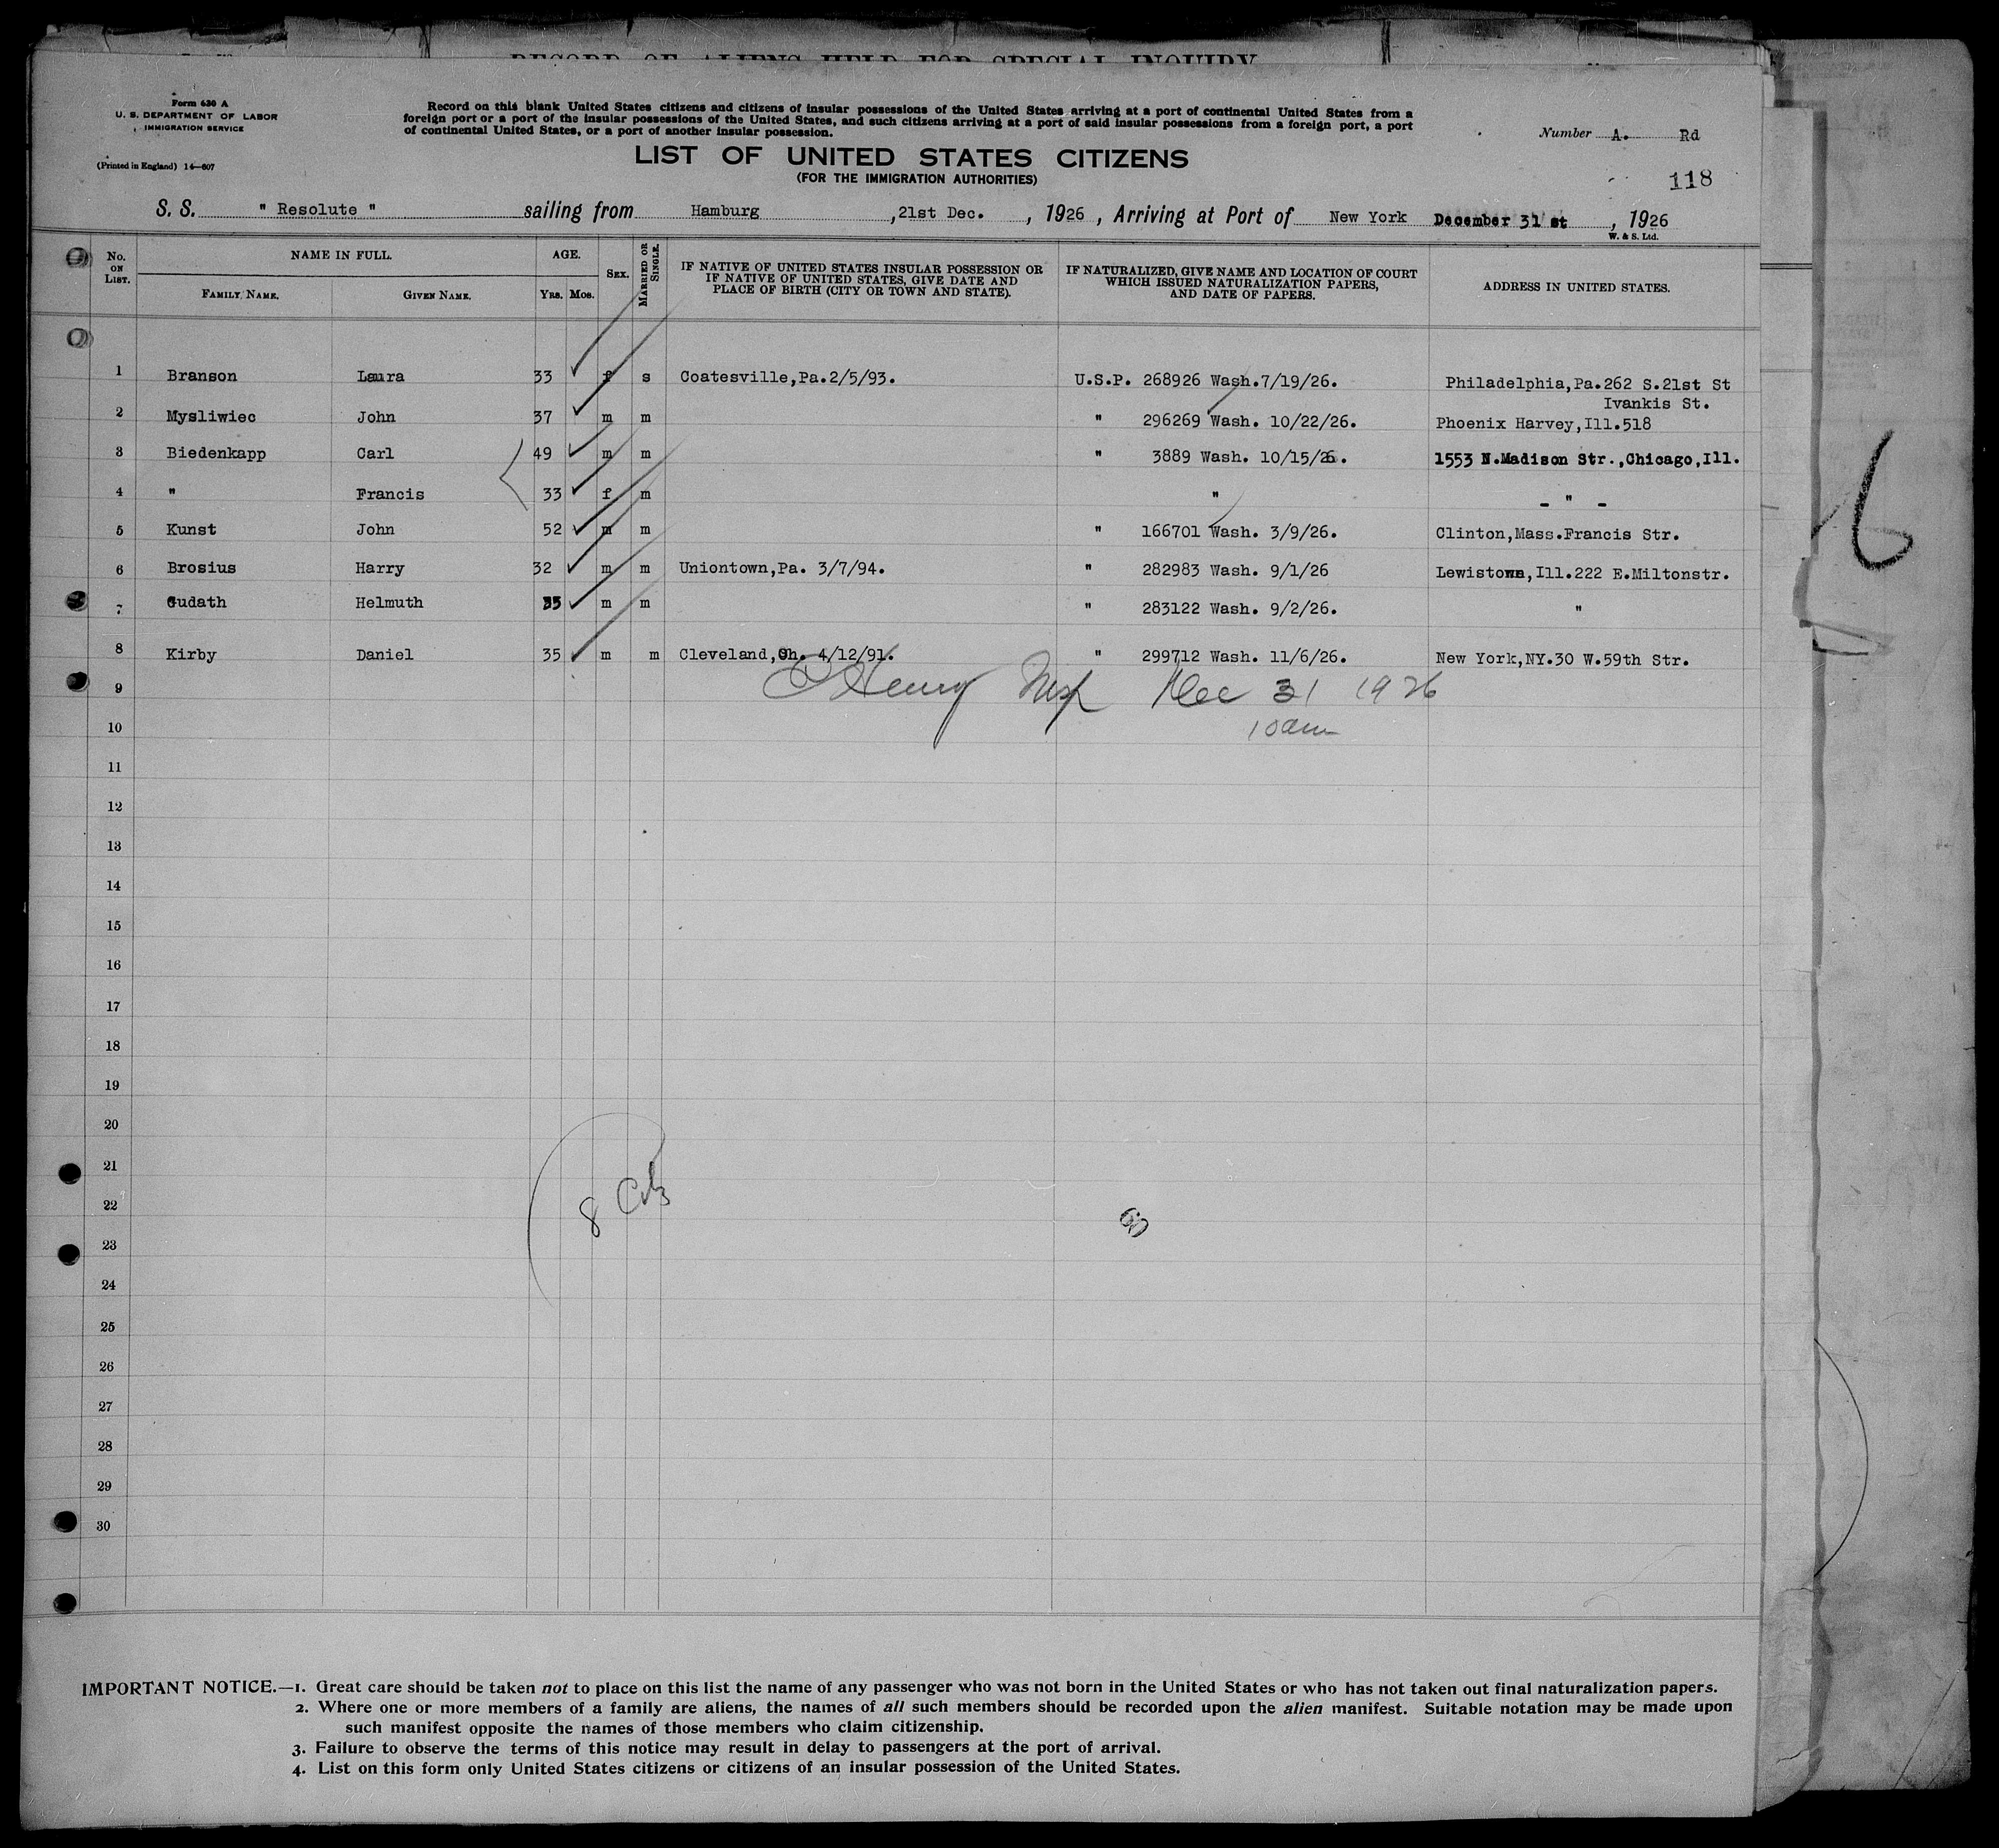 RECORD OF ALIENS HELD FOR SPECIAL INQUIRY
Form 630 A
U. S. DEPARTMENT OF LABOR
IMMIGRATION SERVICE
(Printed in England) 14—607
Record on this blank United States citizens and citizens of insular possessions of the United States arriving at a port of continental United States from a
foreign port or a port of the insular possessions of the United States, and such citizens arriving at a port of said insular possessions from a foreign port, a port
of continental United States, or a port of another insular possession.
Number A. Rd
LIST OF UNITED STATES CITIZENS
(FOR THE IMMIGRATION AUTHORITIES)
118
S. S. " Resolute " sailing from Hamburg , 21st Dec. , 1926 , Arriving at Port of New York December 31 st , 1926
W. & S. Ltd.
No. ON LIST. NAME IN FULL. AGE. SEX. MARRIED OR SINGLE. IF NATIVE OF UNITED STATES INSULAR POSSESSION OR IF NATIVE OF UNITED STATES, GIVE DATE AND PLACE OF BIRTH (CITY OR TOWN AND STATE). IF NATURALIZED, GIVE NAME AND LOCATION OF COURT WHICH ISSUED NATURALIZATION PAPERS, AND DATE OF PAPERS. ADDRESS IN UNITED STATES.
FAMILY NAME. GIVEN NAME. YRS. MOS.
1 Branson Laura 33 f s Coatesville,Pa.2/5/93. U.S.P. 268926 Wash.7/19/26. Philadelphia,Pa.262 S.21st St
Ivankis St.
2 Mysliwiec John 37 m m " 296269 Wash. 10/22/26. Phoenix Harvey,Ill.518
3 Biedenkapp Carl 49 m m " 3889 Wash. 10/15/26. 1553 N.Madison Str.,Chicago,Ill.
4 " Francis 33 f m " - " -
5 Kunst John 52 m m " 166701 Wash. 3/9/26. Clinton,Mass.Francis Str.
6 Brosius Harry 32 m m Uniontown,Pa. 3/7/94. " 282983 Wash. 9/1/26 Lewistown,Ill.222 E.Miltonstr.
7 Gudath Helmuth 35 m m " 283122 Wash. 9/2/26. "
8 Kirby Daniel 35 m m Cleveland,Oh. 4/12/91. " 299712 Wash. 11/6/26. New York,NY.30 W.59th Str.
9 Henry Insp Dec 31 1926
10 10am
11
12
13
14
15
16
17
18
19
20
21
22 8 Cits
23
24
25
26
27
28
29
30
IMPORTANT NOTICE.—1. Great care should be taken not to place on this list the name of any passenger who was not born in the United States or who has not taken out final naturalization papers.
2. Where one or more members of a family are aliens, the names of all such members should be recorded upon the alien manifest. Suitable notation may be made upon
such manifest opposite the names of those members who claim citizenship.
3. Failure to observe the terms of this notice may result in delay to passengers at the port of arrival.
4. List on this form only United States citizens or citizens of an insular possession of the United States.